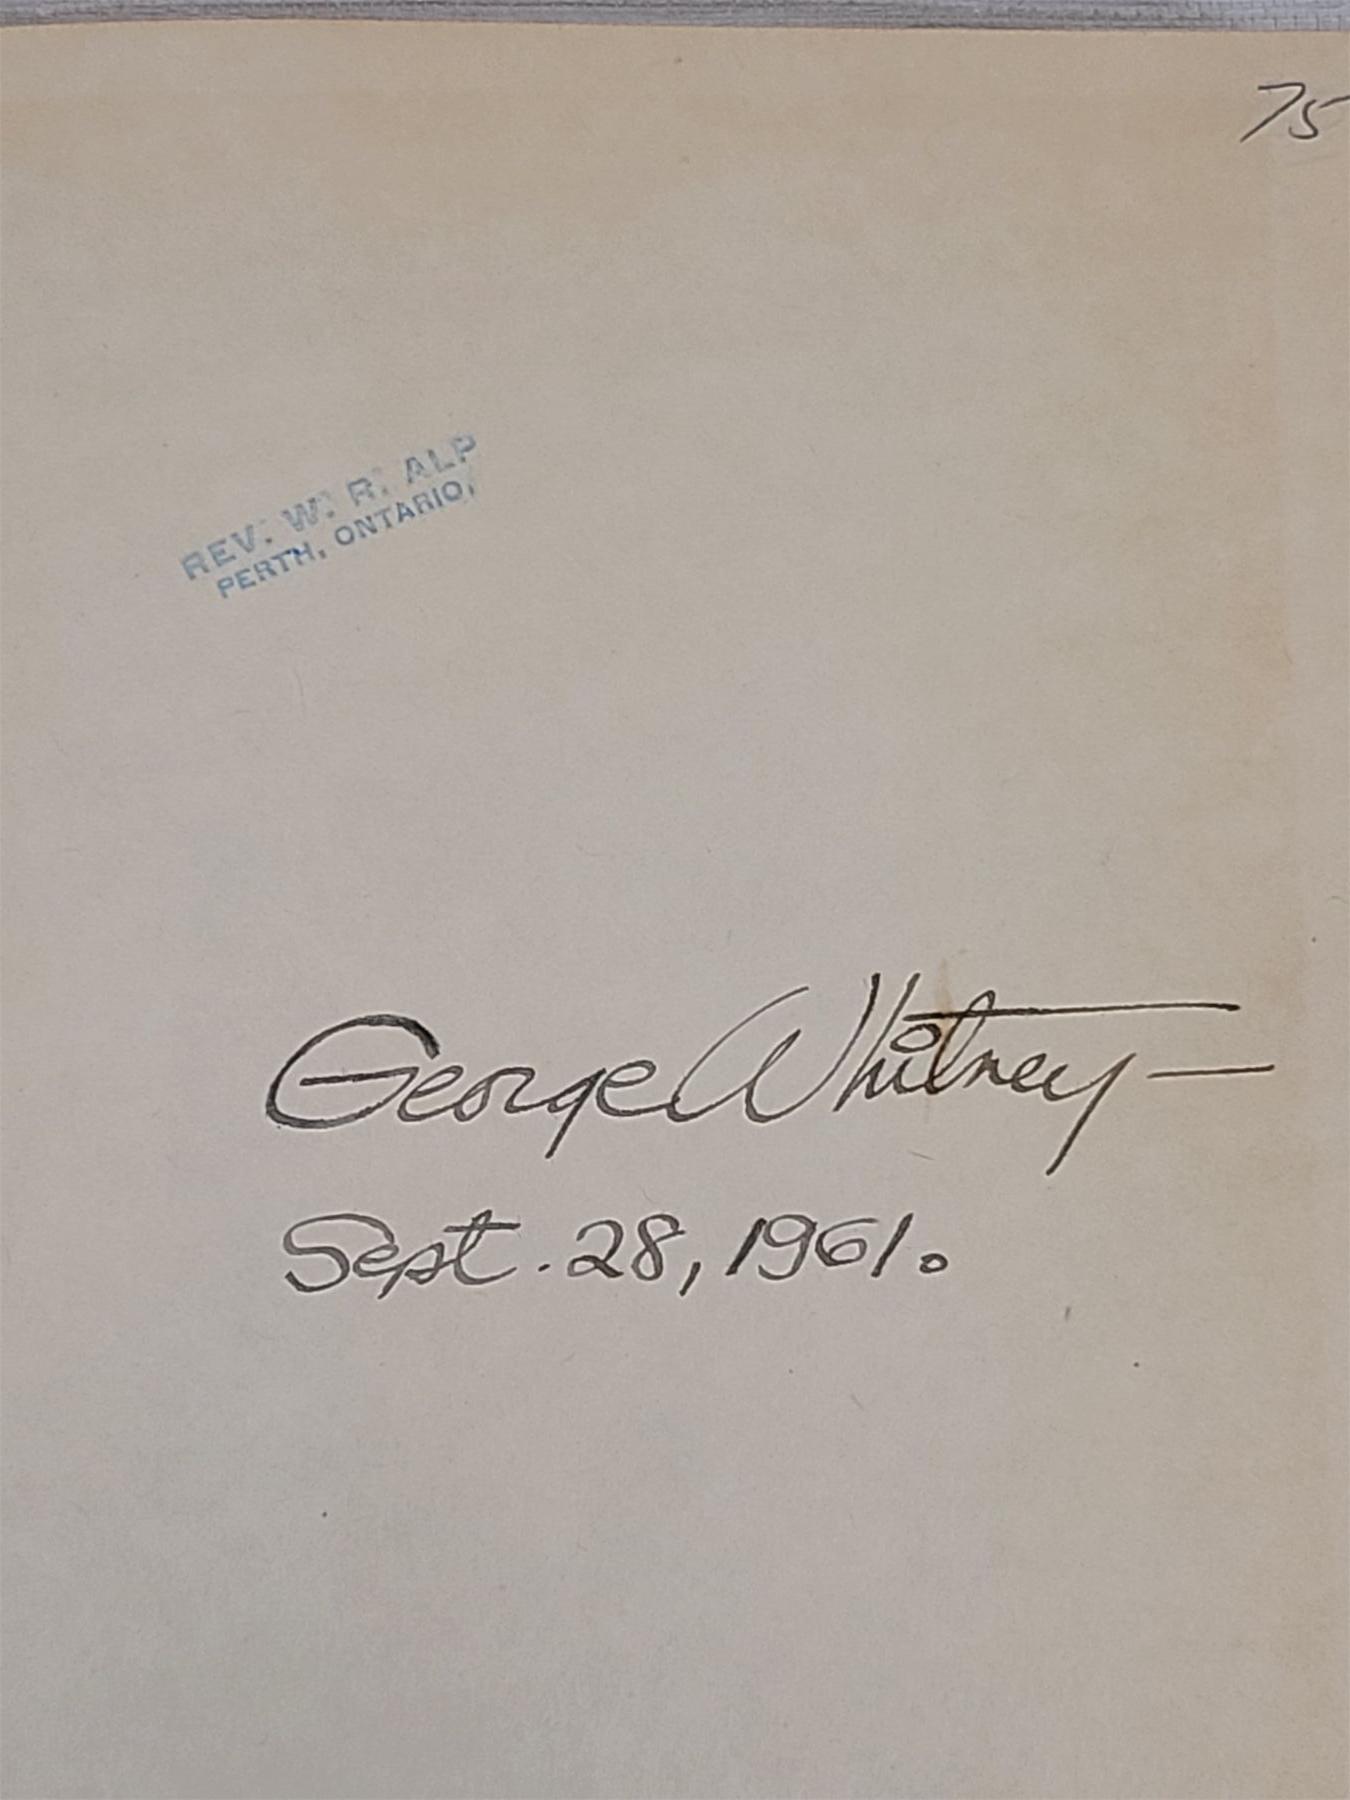 75
REV. W. R. ALP
PERTH, ONTARIO,
George Whitney —
Sept. 28, 1961.